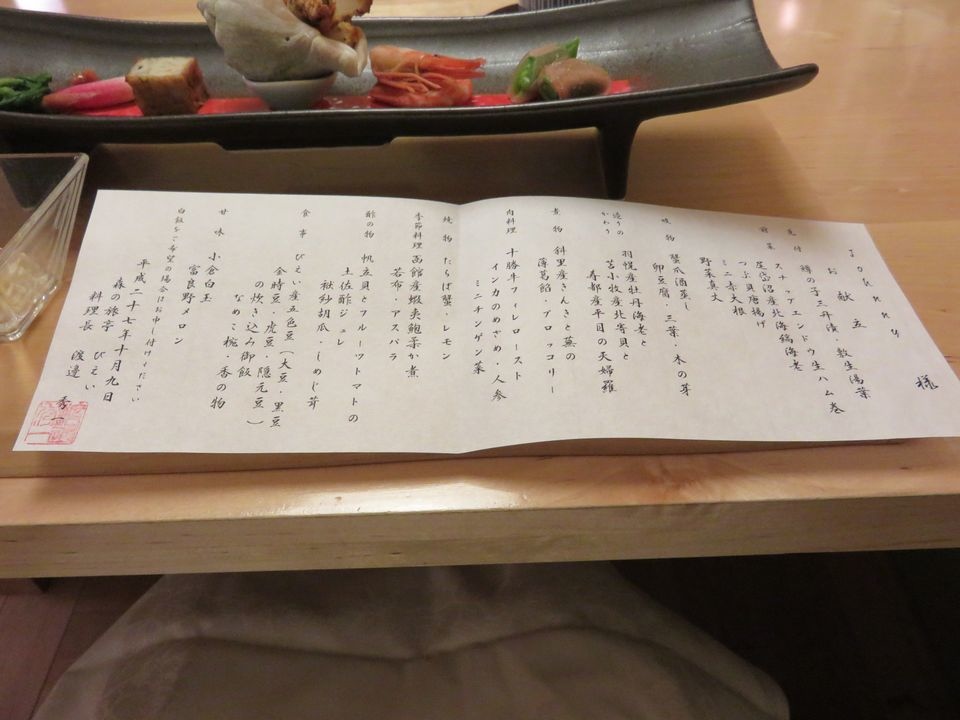 Johnny 様
お献立
先付 鱒の子三升漬・敷生湯葉
スナップエンドウ生ハム巻
前菜 尾岱沼産北海縞海老
つぶ貝唐揚げ
ミニ赤大根
野菜真丈
吸物 蟹爪酒蒸し
卵豆腐・三葉・木の芽
造りの 羽幌産牡丹海老と
かわり 苫小牧産北寄貝と
寿都産平目の天婦羅
煮物 斜里産きんきと蕪の
薄葛餡・ブロッコリー
肉料理 十勝牛フィレロースト
インカのめざめ・人参
ミニチンゲン菜
焼物 たらば蟹・レモン
季節料理 函館産蝦夷鮑柔か煮
若布・アスパラ
酢の物 帆立貝とフルーツトマトの
土佐酢ジュレ
胡瓜・しめじ茸
食事 びえい産五色豆(大豆・黒豆
金時豆・虎豆・隠元豆)
の炊き込み御飯
なめこ椀・香の物
甘味 小倉白玉
富良野メロン
白飯をご希望の場合はお申し付けください
平成二十七年十月九日
森の旅亭 びえい
料理長 渡邉 秀一